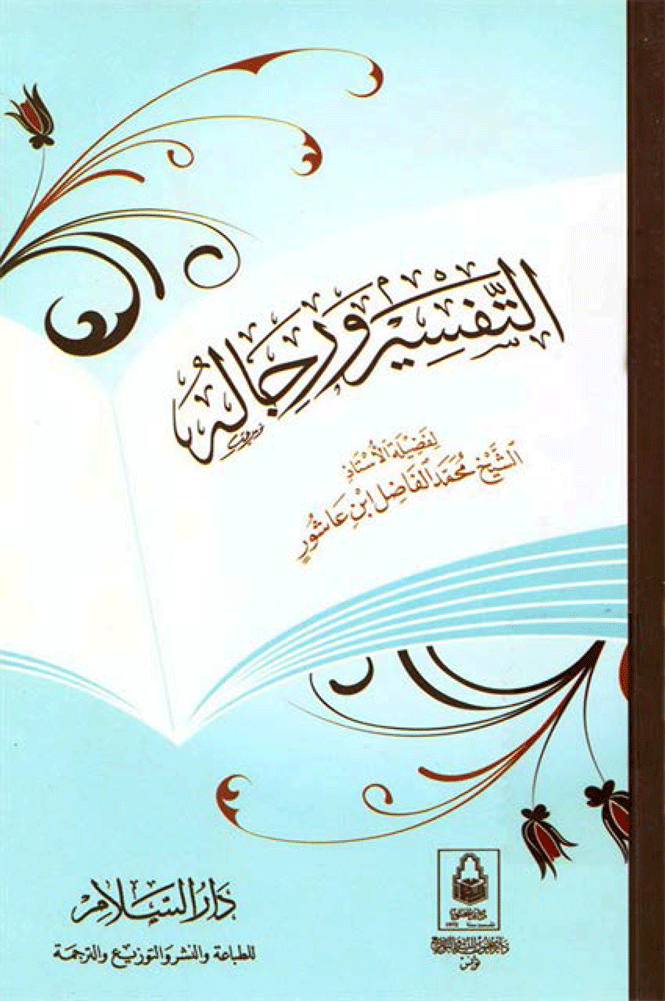 التَّفْسِيْر وَرِجَالُهُ
لفَضِيلَة الأُسْتَاذِ
الشَّيْخ مُحَمَّد الفَاضِل ابْن عَاشُورٍ
دَارُ السَّلَامِ
للطباعة والنشر والتوزيع والترجمة
تونس